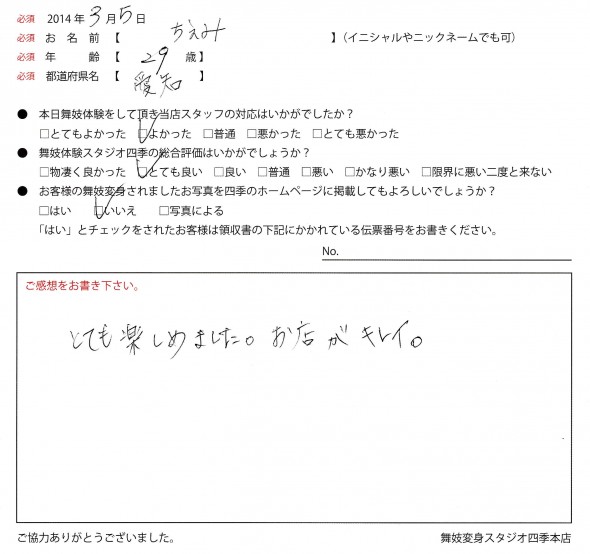 必須 2014年 3月5日
必須 お名前【 ちえみ 】（イニシャルやニックネームでも可）
必須 年齢【 29 歳】
必須 都道府県名【 愛知 】
● 本日舞妓体験をして頂き当店スタッフの対応はいかがでしたか？
□とてもよかった □よかった □普通 □悪かった □とても悪かった
● 舞妓体験スタジオ四季の総合評価はいかがでしょうか？
□物凄く良かった □とても良い □良い □普通 □悪い □かなり悪い □限界に悪い二度と来ない
● お客様の舞妓変身されましたお写真を四季のホームページに掲載してもよろしいでしょうか？
□はい □いいえ □写真による
「はい」とチェックをされたお客様は領収書の下記にかかれている伝票番号をお書きください。
No.
ご感想をお書き下さい。
とても楽しめました。お店がキレイ。
ご協力ありがとうございました。 舞妓変身スタジオ四季本店